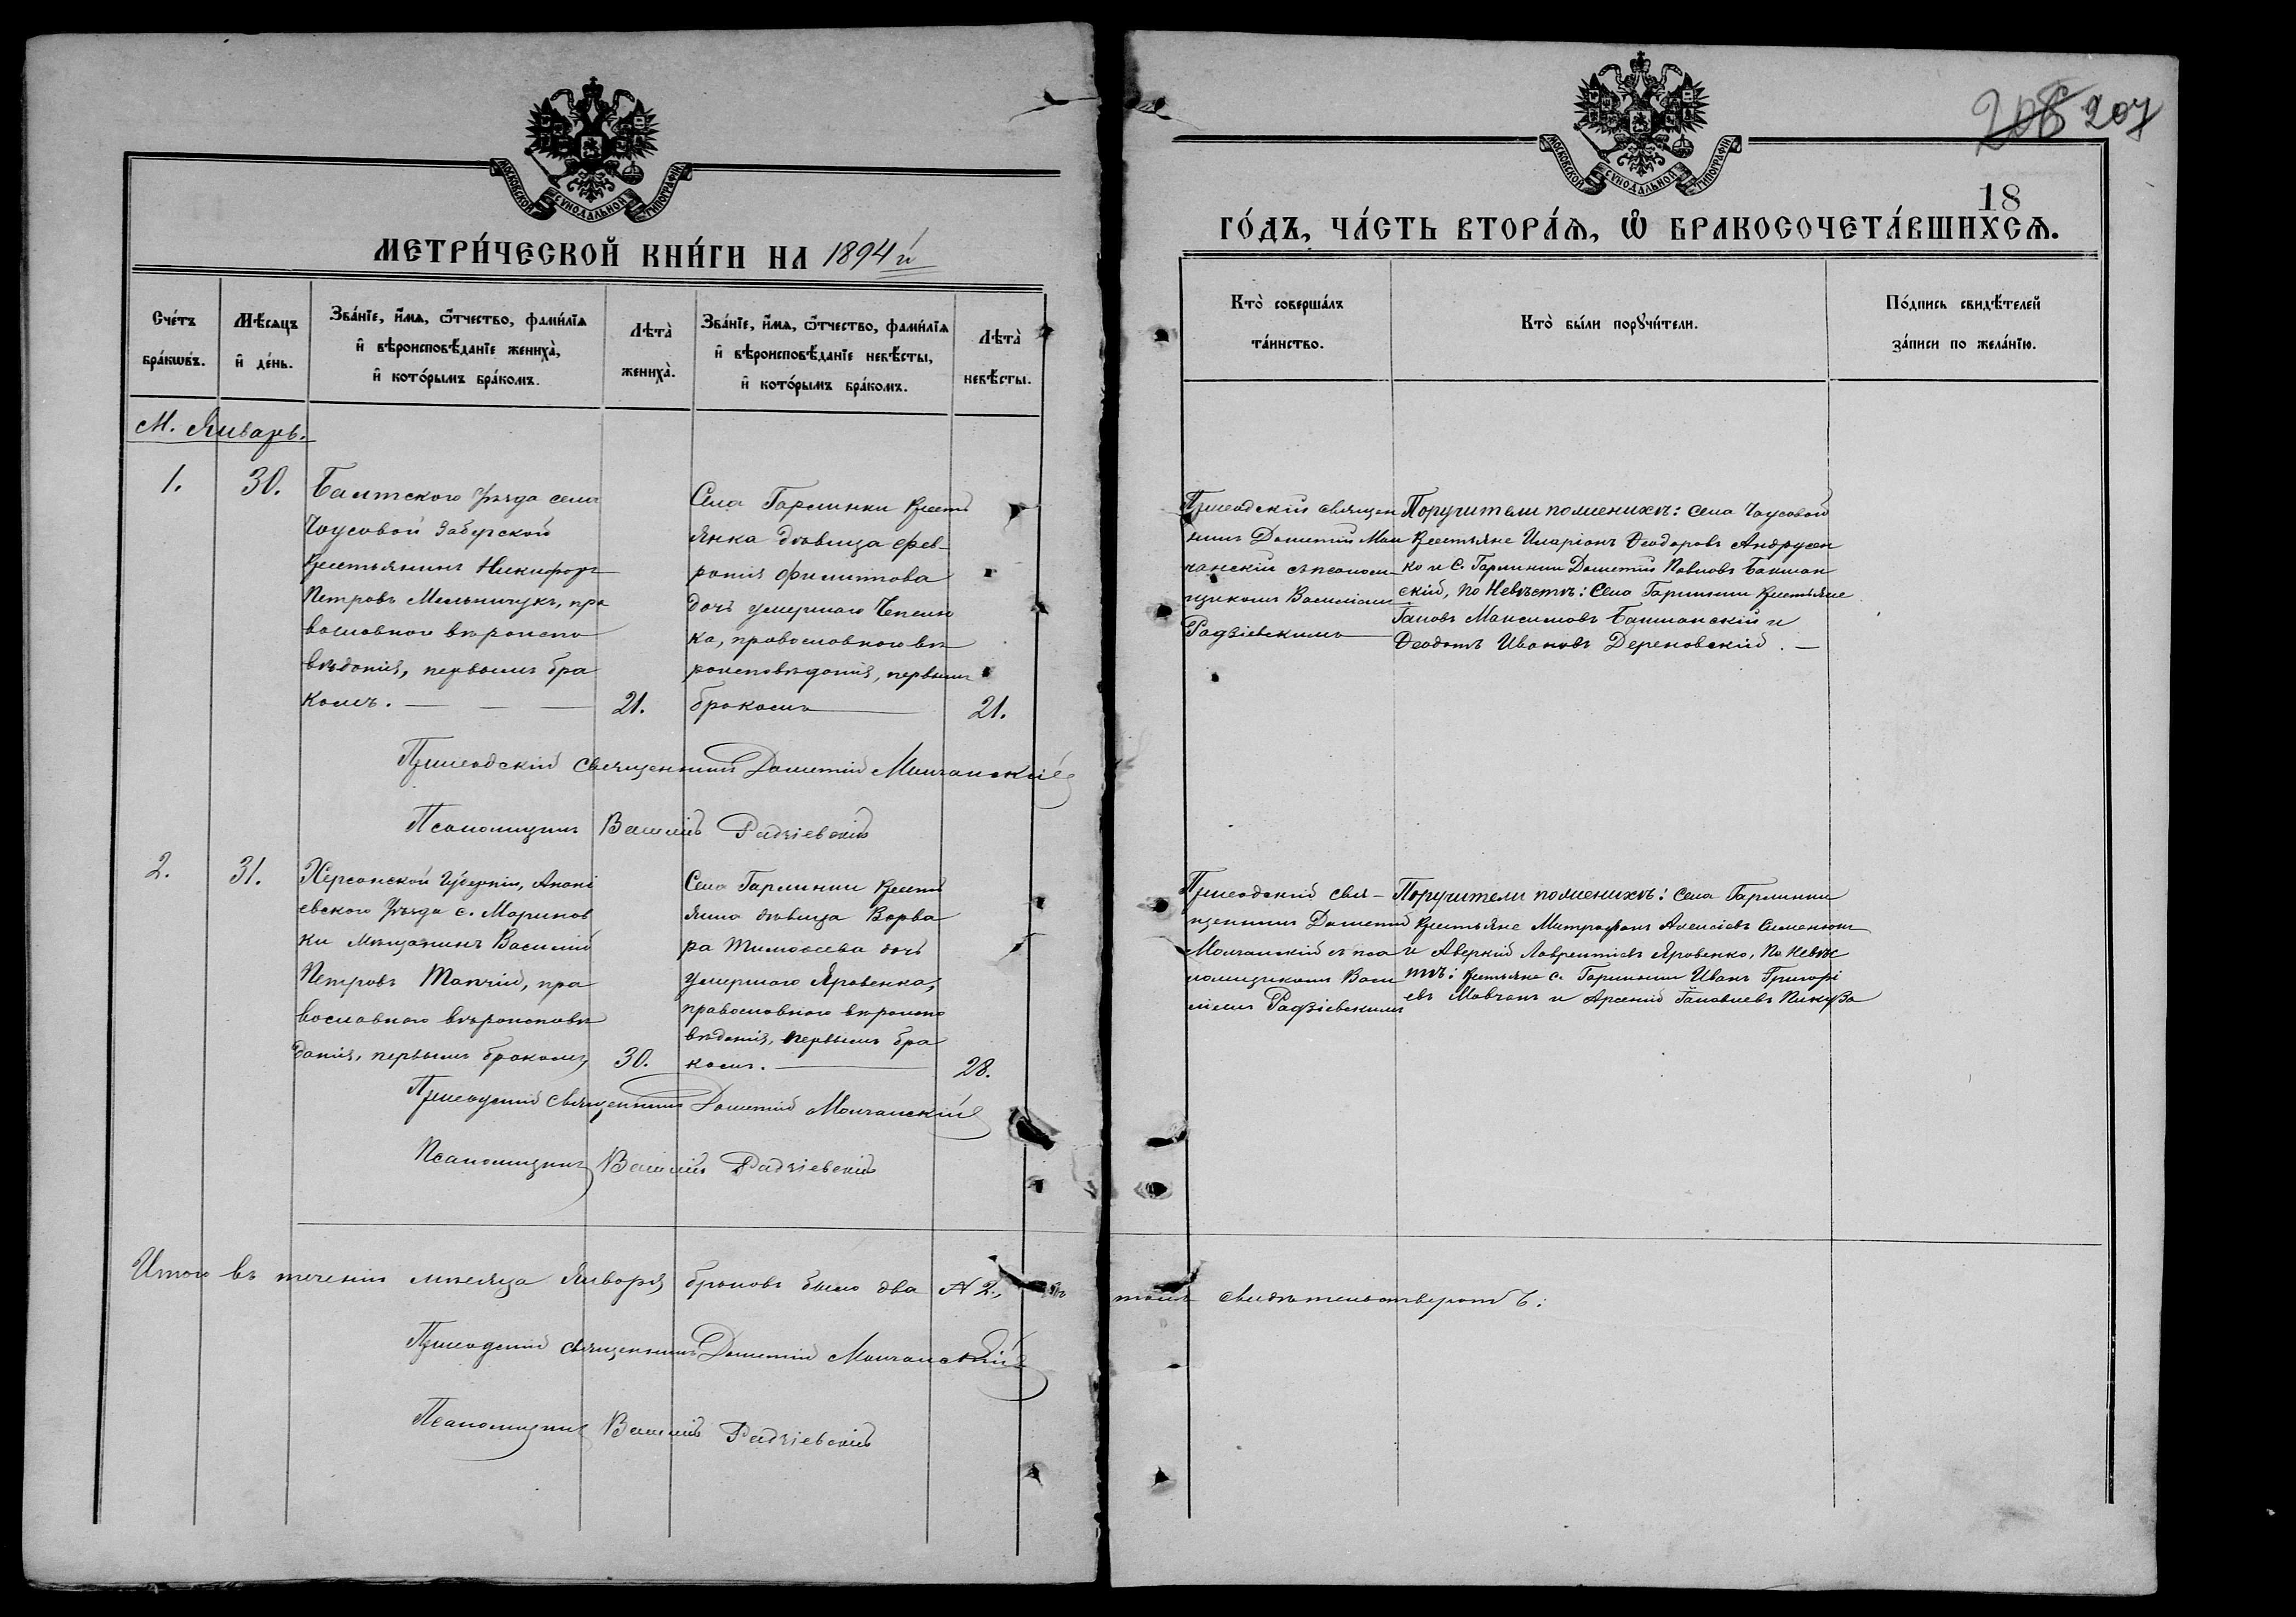 МОСКОВСКОЙ СУНОДАЛЬНОЙ ТИПОГРАФІИ
МЕТРИ́ЧЕСКОЙ КНИ́ГИ НА 1894 й
Сче́тъ бра́кѡвъ.
Мѣ́сяцъ и҆ де́нь.
Зва́нїе, и҆́мѧ, ѻ҆́тчество, фами́лїѧ и҆ вѣроисповѣ́данїе жениха̀, и҆ кото́рымъ бра́комъ.
Лѣта̀ жениха̀.
Зва́нїе, и҆́мѧ, ѻ҆́тчество, фами́лїѧ и҆ вѣроисповѣ́данїе невѣ́сты, и҆ кото́рымъ бра́комъ.
Лѣта̀ невѣ́сты.
М. Январь.
1.
30.
Балтского Уѣзда села
Чаусовой Забугской
Крестьянинъ Никифоръ
Петровъ Мельничукъ, пра
вославного вѣроиспо
вѣданія, первымъ бра
комъ.
21.
Села Гармики Кресть
янка дѣвица Фев-
ронія Филиппова
дочь умершаго Чепелю
ка, православного вѣ
роисповѣданія, первымъ
бракомъ
21.
Приходскій Священникъ Дометій Молчанскій
Псаломщикъ Василій Радзіевскій
2.
31.
Херсонской Губерніи, Анані
евского Уѣзда с. Маринов
ки мѣщанинъ Василій
Петровъ Топчій, пра
вославного вѣроисповѣ
данія, первымъ бракомъ,
30.
Села
дѣвица Варва
ра Тимоѳеева дочь
умершаго Яровенка,
православного вѣроиспо
вѣданія, первымъ бра
комъ.
28.
Приходскій Священникъ Дометій Молчанскій
Псаломщикъ Василій Радзіевскій
Итого въ теченіи мѣсяца Января браковъ было два № 2., въ
Приходскій Священникъ Дометій Молчанскій
Псаломщикъ Василій Радзіевскій
МОСКОВСКОЙ СУНОДАЛЬНОЙ ТИПОГРАФІИ
206 207
18
ГО́ДЪ, ЧА́СТЬ ВТОРА́Ѧ, Ѡ҆ БРАКОСОЧЕТА́ВШИХСѦ.
Кто̀ соверша́лъ та́инство.
Кто̀ бы́ли порꙋчи́тели.
По́дпись свидѣ́телей за́писи по жела́нїю.
Приходскій Священ
никъ Дометій Мол
чанскій съ псалом-
щикомъ Василіемъ
Радзіевскимъ
Поручители по женихѣ: села Чаусовой
Крестьяне Иларіонъ Ѳеодоровъ Андрусен
ко и с. Дометій Павловъ
скій, по Невѣстѣ: Села Крестьяне
Максимовъ и
Ѳеодотъ Ивановъ Дереновскій.
Приходскій Свя-
щенникъ Дометій
Молчанскій съ пса
ломщикомъ Васи
ліемъ Радзіевскимъ
Поручители по женихѣ: Села
Крестьяне Митрофанъ Алексіевъ Сименюкъ
и Аверкій Лаврентіевъ Яровенко, по Невѣс
тѣ: Крестьяне с. Иванъ Григорі
евъ Мовчанъ и Арсеній
томъ свидѣтельствуютъ: